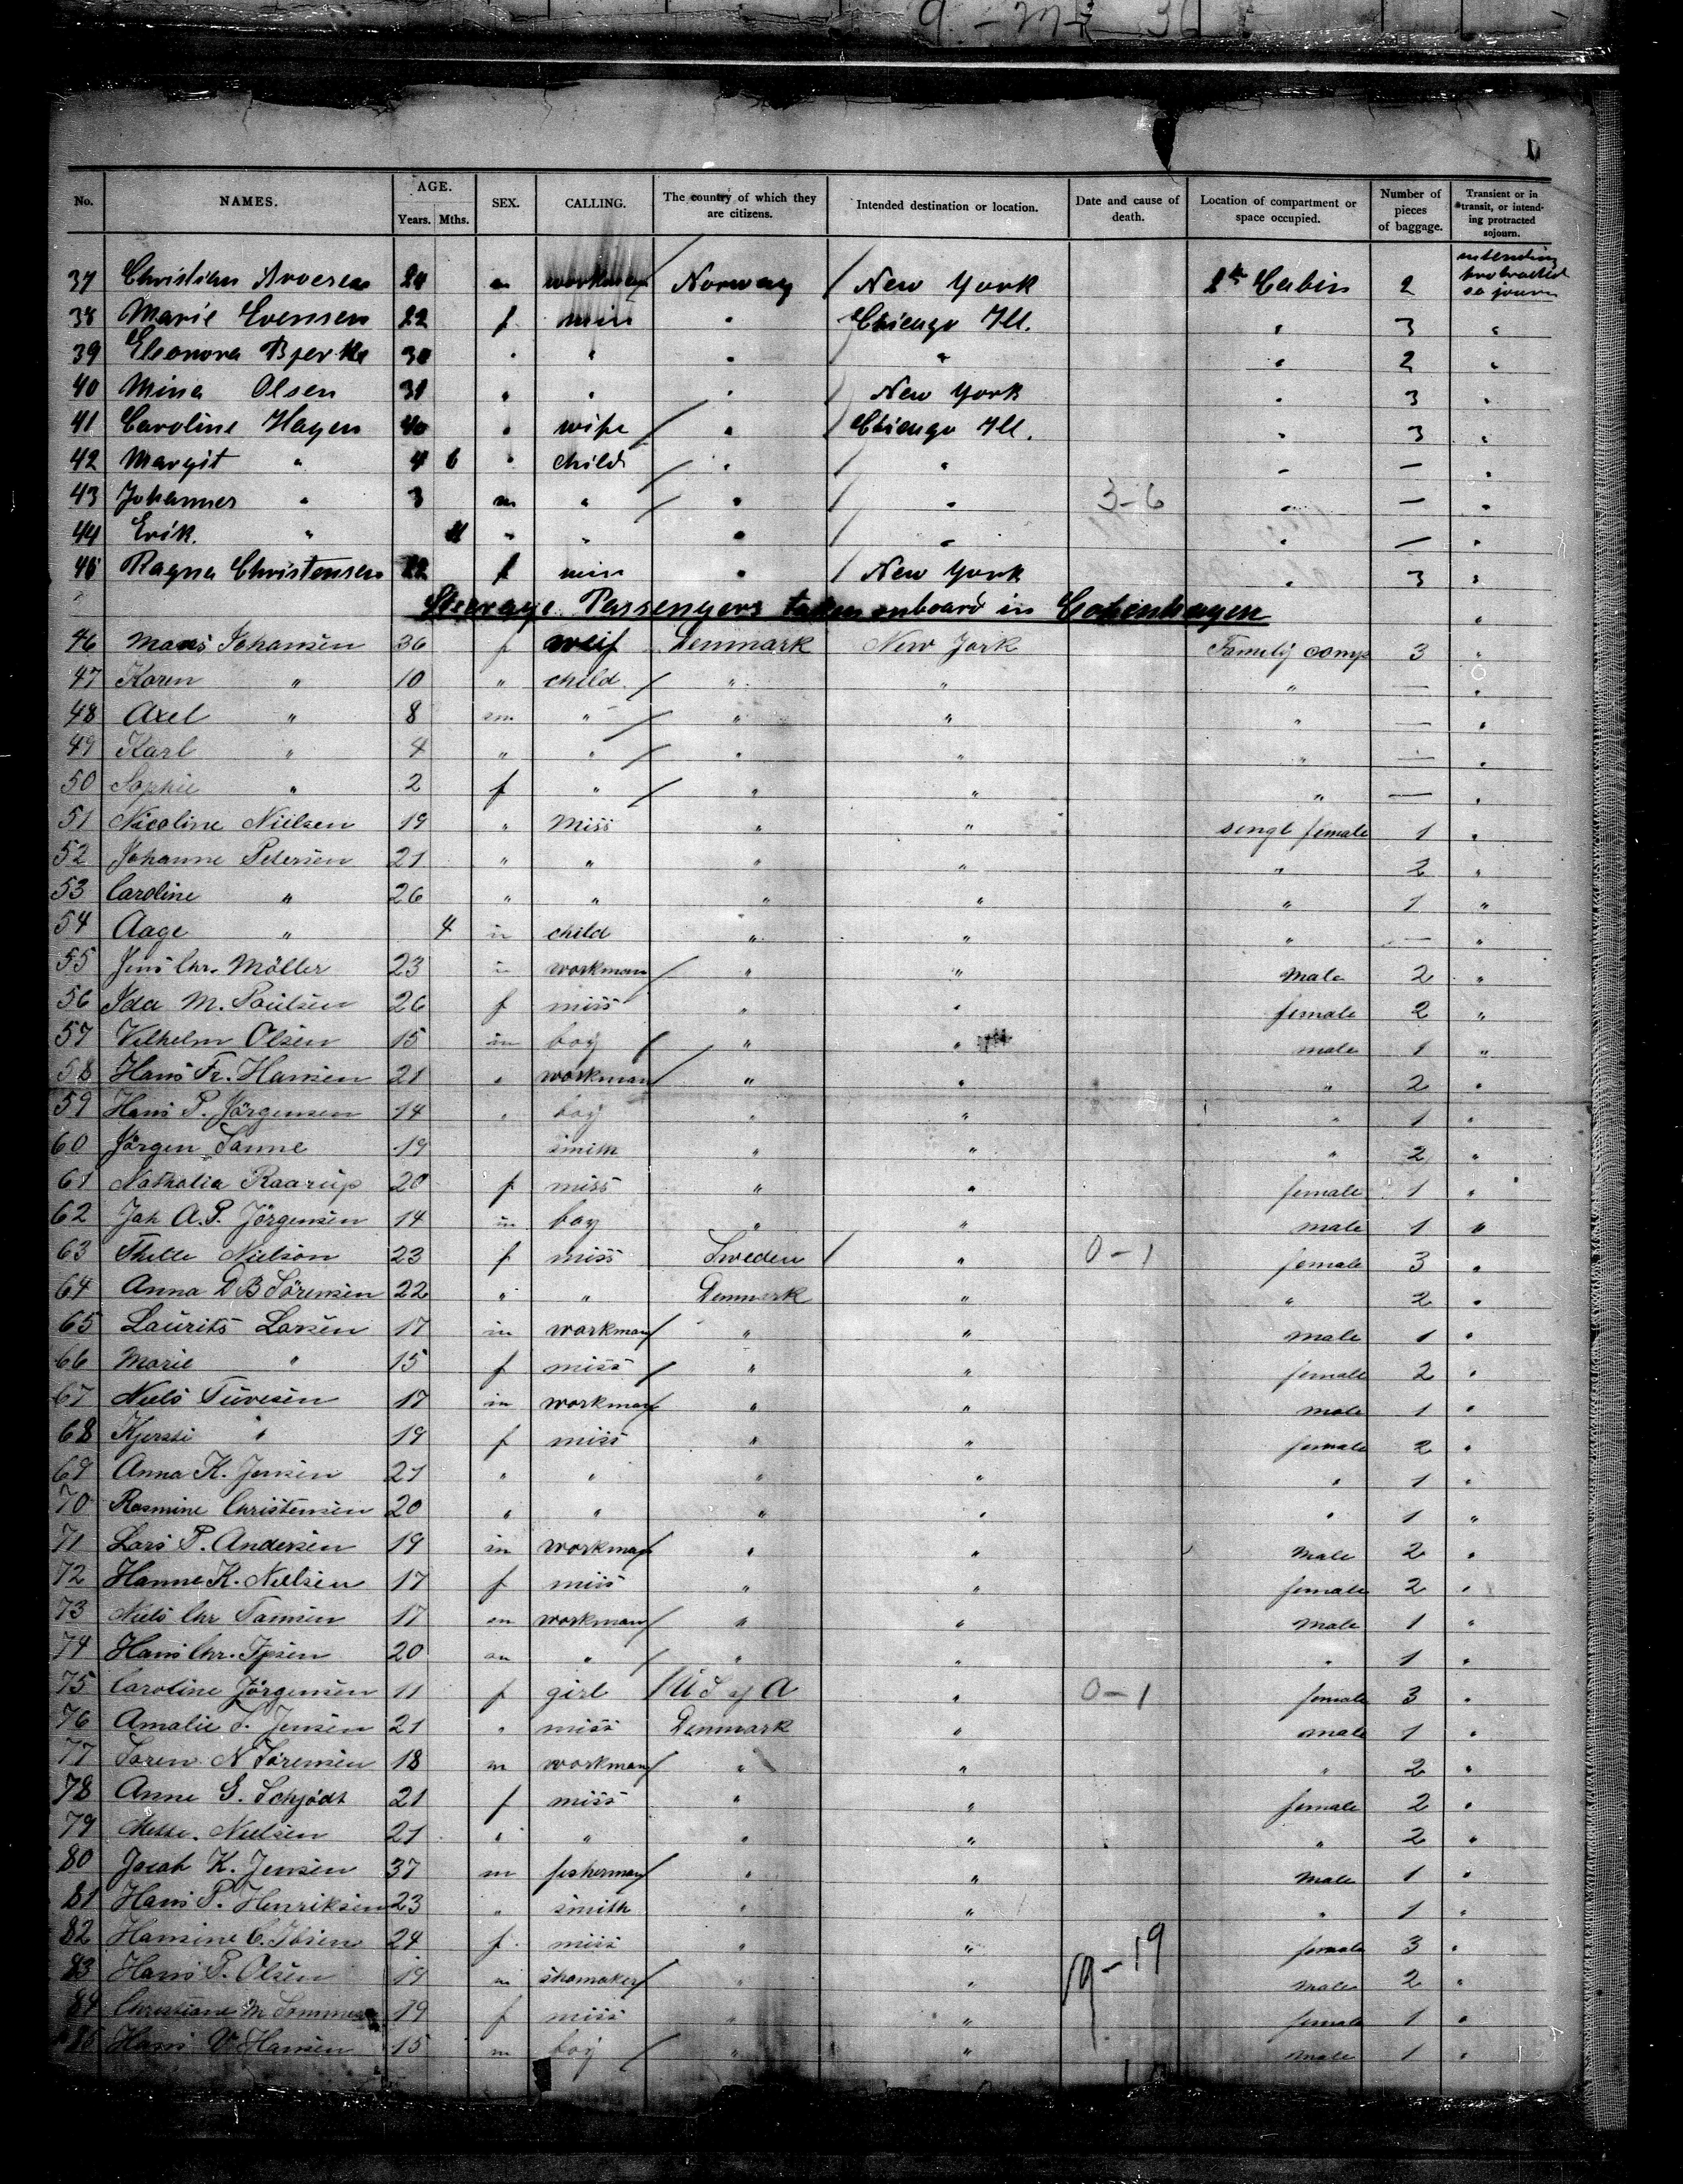 9
L
No. NAMES. AGE. Years. Mths. SEX. CALLING. The country of which they are citizens. Intended destination or location. Date and cause of death. Location of compartment or space occupied. Number of pieces of baggage. Transient or in transit, or intending protracted sojourn.
37 Christian 2 m workman Norway New York Cabin 2 intending protracted sojourn
38 Marie Evensen 22 f miss " Chicago Ill. " 3 "
39 Eleonora Bjerke 30 " " " " " 2 "
40 Mina Olsen 31 " " " New York " 3 "
41 Caroline Hagen 40 " wife " Chicago Ill. " 3 "
42 Margit " 4 6 " child " " " — "
43 Johannes " 3 m " " " 3-6 " — "
44 Erik. " 11 " " " " " — "
45 Ragna Christensen 22 f miss " New York " 3 "
Steerage Passengers taken onboard in Copenhagen "
46 Johansen 36 f weif Denmark New York Family comp 3 "
47 Karen " 10 " child " " " — "
48 Axel " 8 m " " " " — "
49 Karl " 4 " " " " " — "
50 Sophie " 2 f " " " " — "
51 Nicoline Nielsen 19 " Miss " " singl female 1 "
52 Johanne Petersen 21 " " " " " 2 "
53 Caroline " 26 " " " " " 1 "
54 Aage " 4 m child " " " — "
55 Jens Chr. Möller 23 m workman " " male 2 "
56 Ida M. Poulsen 26 f miss " " female 2 "
57 Vilhelm Olsen 15 m boy " " male 1 "
58 Hans Fr. Hansen 21 " workman " " " 2 "
59 Hans P. Jörgensen 14 " boy " " " 1 "
60 Jörgen Sanne 19 smith " " " 2 "
61 Nathalia Raarup 20 f miss " " female 1 "
62 Joh A. P. Jörgensen 14 m boy " " male 1 "
63 Nielson 23 f miss Sweden " 0-1 female 3 "
64 Anna D B Sörensen 22 " " Denmark " " 2 "
65 Laurits Larsen 17 m workman " " male 1 "
66 Marie " 15 f miss " " female 2 "
67 Niels Tuvesen 17 m workman " " male 1 "
68 Kjersti " 19 f miss " " female 2 "
69 Anna K. Jensen 21 " " " " " 1 "
70 Rasmine Christensen 20 " " " " " 1 "
71 Lars P. Andersen 19 m workman " " Male 2 "
72 Hanne K. Nielsen 17 f miss " " female 2 "
73 Niels Chr 17 m workman " " male 1 "
74 Hans Chr. Ipsen 20 m " " " " 1 "
75 Caroline Jörgensen 11 f girl U S of A " 0-1 female 3 "
76 Amalie Jensen 21 " miss Denmark " male 1 "
77 Soren N Sörensen 18 m workman " " " 2 "
78 Anne G. Schjödt 21 f miss " " female 2 "
79 Mette. Nielsen 21 " " " " " 2 "
80 Jacob K. Jensen 37 m fisherman " " male 1 "
81 Hans P. Henriksen 23 " smith " " " 1 "
82 Hansine C. Ibsen 24 f miss " " female 3 "
83 Hans P. Olsen 19 m shomaker " " 19-19 male 2 "
84 Christiane M 19 f miss " " female 1 "
85 Hans V Hansen 15 m boy " " male 1 "